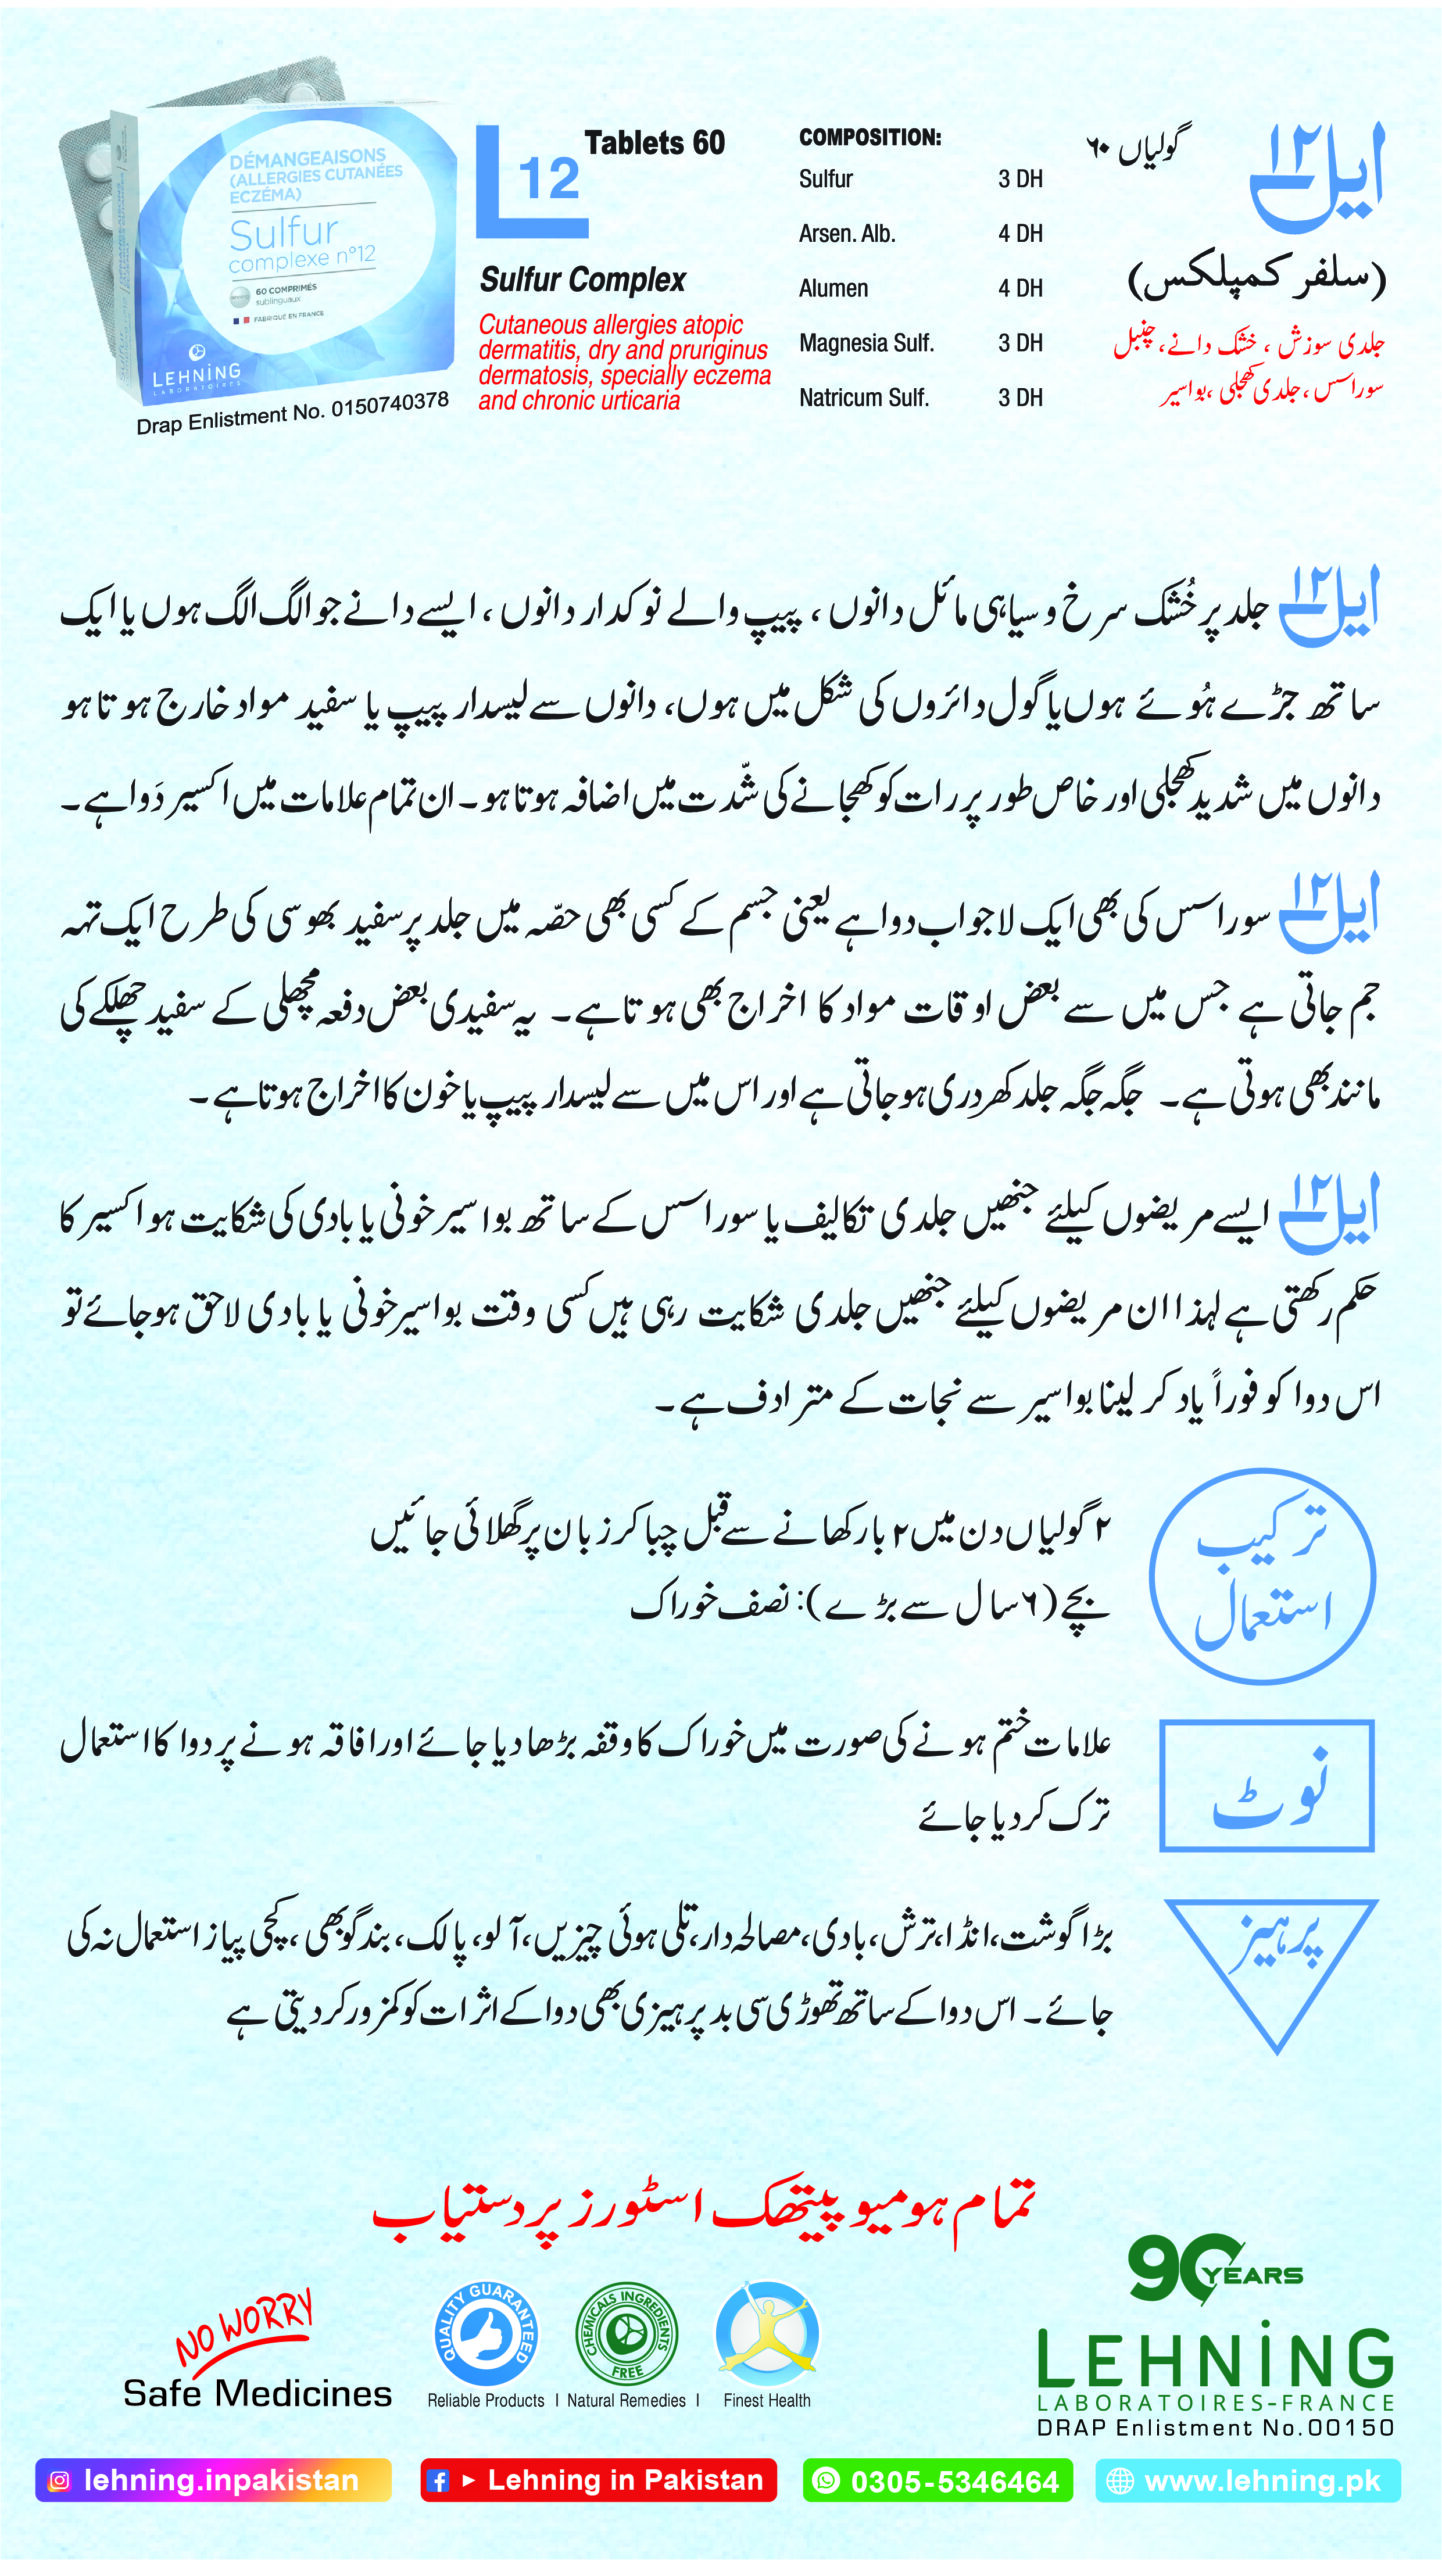 DÉMANGEAISONS
(ALLERGIES CUTANÉES
ECZÉMA)
Sulfur
complexe n°12
60 COMPRIMÉS
sublinguaux
FABRIQUÉ EN FRANCE
LEHNING
LABORATOIRES
Drap Enlistment No. 0150740378
L 12 Tablets 60
Sulfur Complex
Cutaneous allergies atopic
dermatitis, dry and pruriginus
dermatosis, specially eczema
and chronic urticaria
COMPOSITION:
Sulfur 3 DH
Arsen. Alb. 4 DH
Alumen 4 DH
Magnesia Sulf. 3 DH
Natricum Sulf. 3 DH
ایل ۱۲ گولیاں ۶۰
(سلفر کمپلکس)
جلدی سوزش ، خشک دانے، چنبل
سوراسس ،جلدی کھجلی ،بواسیر
ایل ۱۲ جلد پر خُشک سرخ و سیاہی مائل دانوں ، پیپ والے نوکدار دانوں ، ایسے دانے جو الگ الگ ہوں یا ایک
ساتھ جڑے ہُوئے ہوں یا گول دائروں کی شکل میں ہوں، دانوں سے لیسدار پیپ یا سفید مواد خارج ہوتا ہو
دانوں میں شدید کھجلی اور خاص طور پر رات کو کھجانے کی شدّت میں اضافہ ہوتا ہو۔ ان تمام علامات میں اکسیر دَوا ہے۔
ایل ۱۲ سوراسس کی بھی ایک لاجواب دوا ہے یعنی جسم کے کسی بھی حصّہ میں جلد پر سفید بھوسی کی طرح ایک تہہ
جم جاتی ہے جس میں سے بعض اوقات مواد کا اخراج بھی ہوتا ہے۔ یہ سفیدی بعض دفعہ مچھلی کے سفید چھلکے کی
مانند بھی ہوتی ہے۔ جگہ جگہ جلد کھردری ہو جاتی ہے اور اس میں سے لیسدار پیپ یا خون کا اخراج ہوتا ہے۔
ایل ۱۲ ایسے مریضوں کیلئے جنھیں جلدی تکالیف یا سوراسس کے ساتھ بواسیر خونی یا بادی کی شکایت ہو اکسیر کا
حکم رکھتی ہے لہذا ان مریضوں کیلئے جنھیں جلدی شکایت رہی ہیں کسی وقت بواسیر خونی یا بادی لاحق ہو جائے تو
اس دوا کو فوراً یاد کر لینا بواسیر سے نجات کے مترادف ہے۔
ترکیب
استعمال
۲ گولیاں دن میں ۲ بار کھانے سے قبل چبا کر زبان پر گھلائی جائیں
بچے (۶ سال سے بڑے): نصف خوراک
نوٹ
علامات ختم ہونے کی صورت میں خوراک کا وقفہ بڑھا دیا جائے اور افاقہ ہونے پر دوا کا استعمال
ترک کر دیا جائے
پرہیز
بڑا گوشت، انڈا، ترش، بادی، مصالحہ دار، تلی ہوئی چیزیں، آلو، پالک، بندگوبھی، کچی پیاز استعمال نہ کی
جائے۔ اس دوا کے ساتھ تھوڑی سی بد پرہیزی بھی دوا کے اثرات کو کمزور کر دیتی ہے
تمام ہومیوپیتھک اسٹورز پر دستیاب
NO WORRY
Safe Medicines
QUALITY GUARANTEED
CHEMICALS INGREDIENTS
FREE
Reliable Products I Natural Remedies I Finest Health
90 YEARS
LEHNING
LABORATOIRES-FRANCE
DRAP Enlistment No.00150
lehning.inpakistan
Lehning in Pakistan
0305-5346464
www.lehning.pk